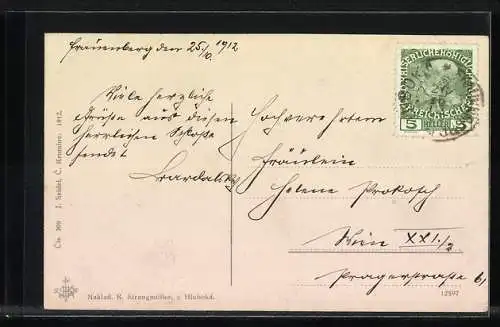 Frauenberg den 25/10. 1912
Viele herzliche
Grüsse aus diesem
herrlichen Schlosse
sendet
Hochverehrtem
Fräulein
Helene Prokosch
Wien XXI./2
Pragerstraße 6,
KAISERLICHE KÖNIGLICHE
ÖSTERREICHISCHE POST
5 HELLER 5
Čís. 309 J. Seidel, Č. Krumlov. 1912.
Naklad. K. Strengmüller, z Hluboké.
12597